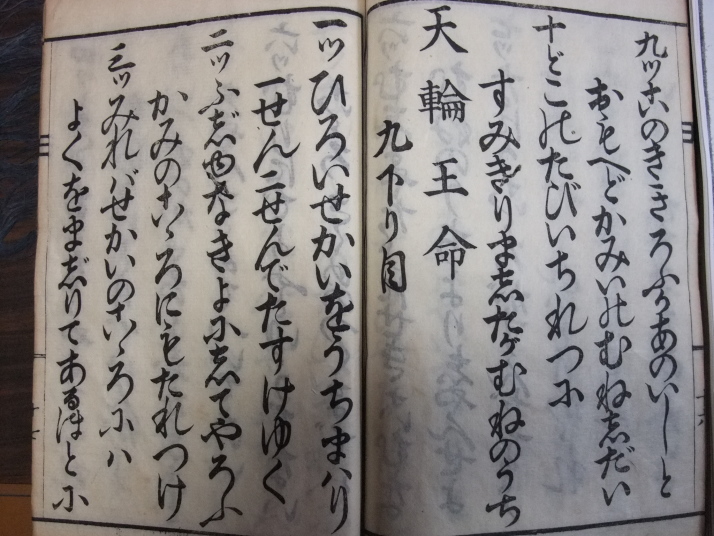 九ッこのきころふかあのいしと
おもへどかみいのむねしだい
十どこのたびいちれつに
すみぎりましたガむねのうち
天輪王命
九下り目
一ッひろいせかいをうちまハり
一せん二せんでたすけゆく
二ッふじゆなきよにしてやろふ
かみのこゝろにもたれつけ
三ッみれバせかいのこゝろにハ
よくをまじりてあるほとに